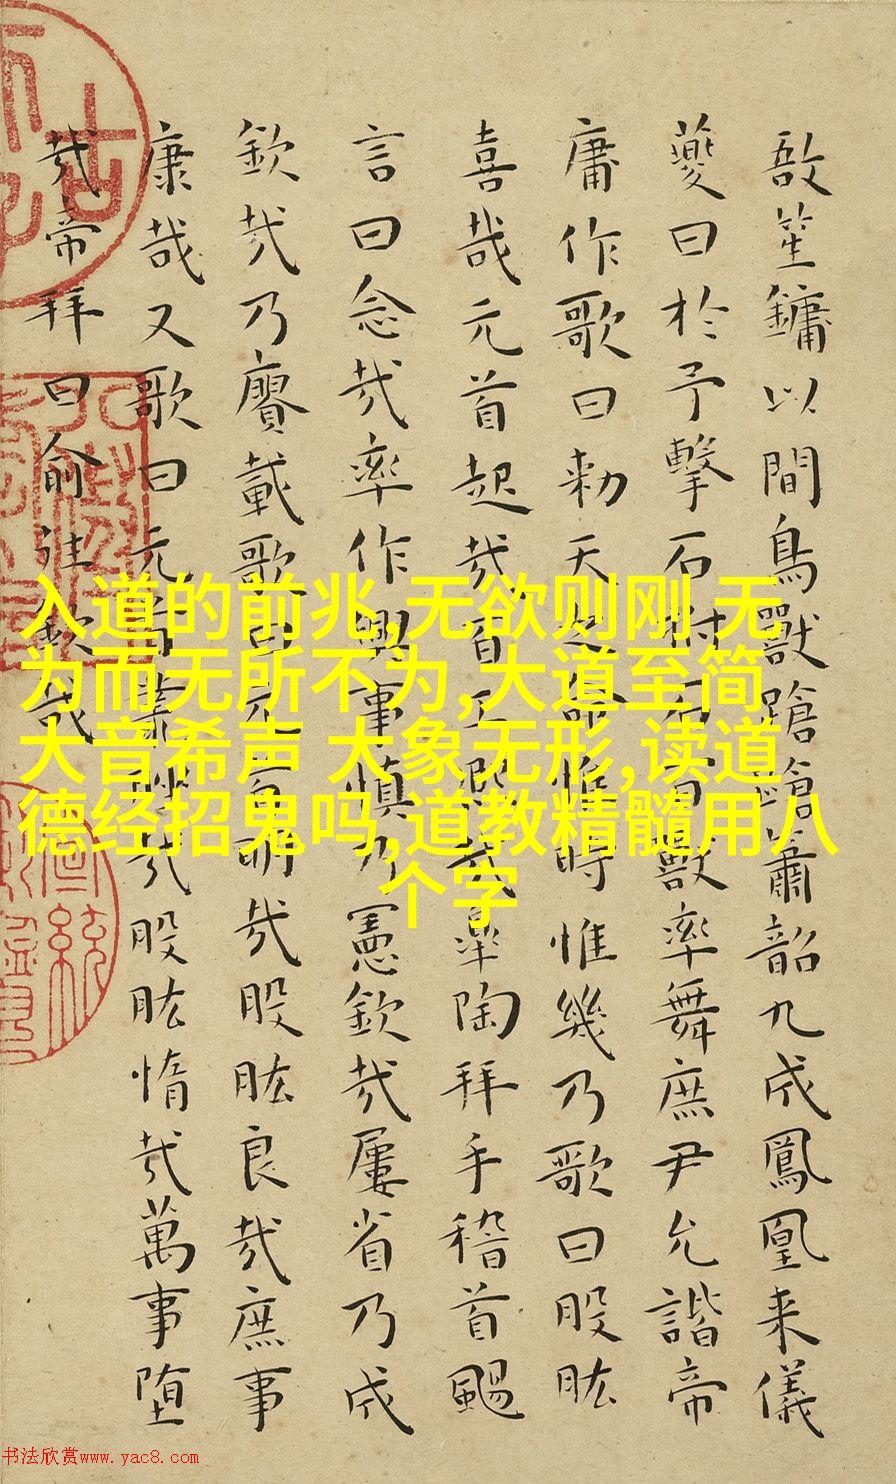 敔笙鏞以間鳥獸蹌蹌簫韶九成鳳凰来儀
夔曰於予擊石拊石百獸率舞庶尹允諧帝
庸作歌曰勑天之命惟時惟幾乃歌曰股肱
喜哉元首起哉百工熙哉皋陶拜手稽首颺
言曰念哉率作興事慎乃憲欽哉屢省乃成
欽哉乃賡載歌曰元首明哉股肱良哉庶事
康哉又歌曰元首叢脞哉股肱惰哉萬事堕
哉帝拜曰俞往欽哉
入道的前兆,无欲则刚 无
为而无所不为,大道至简
大音希声 大象无形,读道
德经招鬼吗,道教精髓用八
个字
书法欣赏www.yac8.com